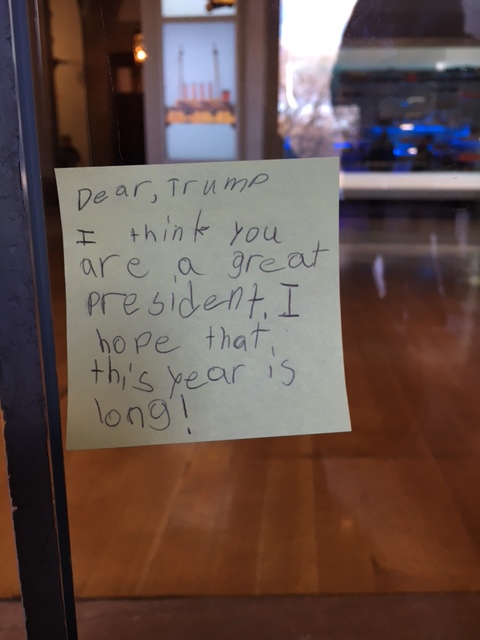 Dear, Trump
I think you
are a great
president. I
hope that
this year is
long!